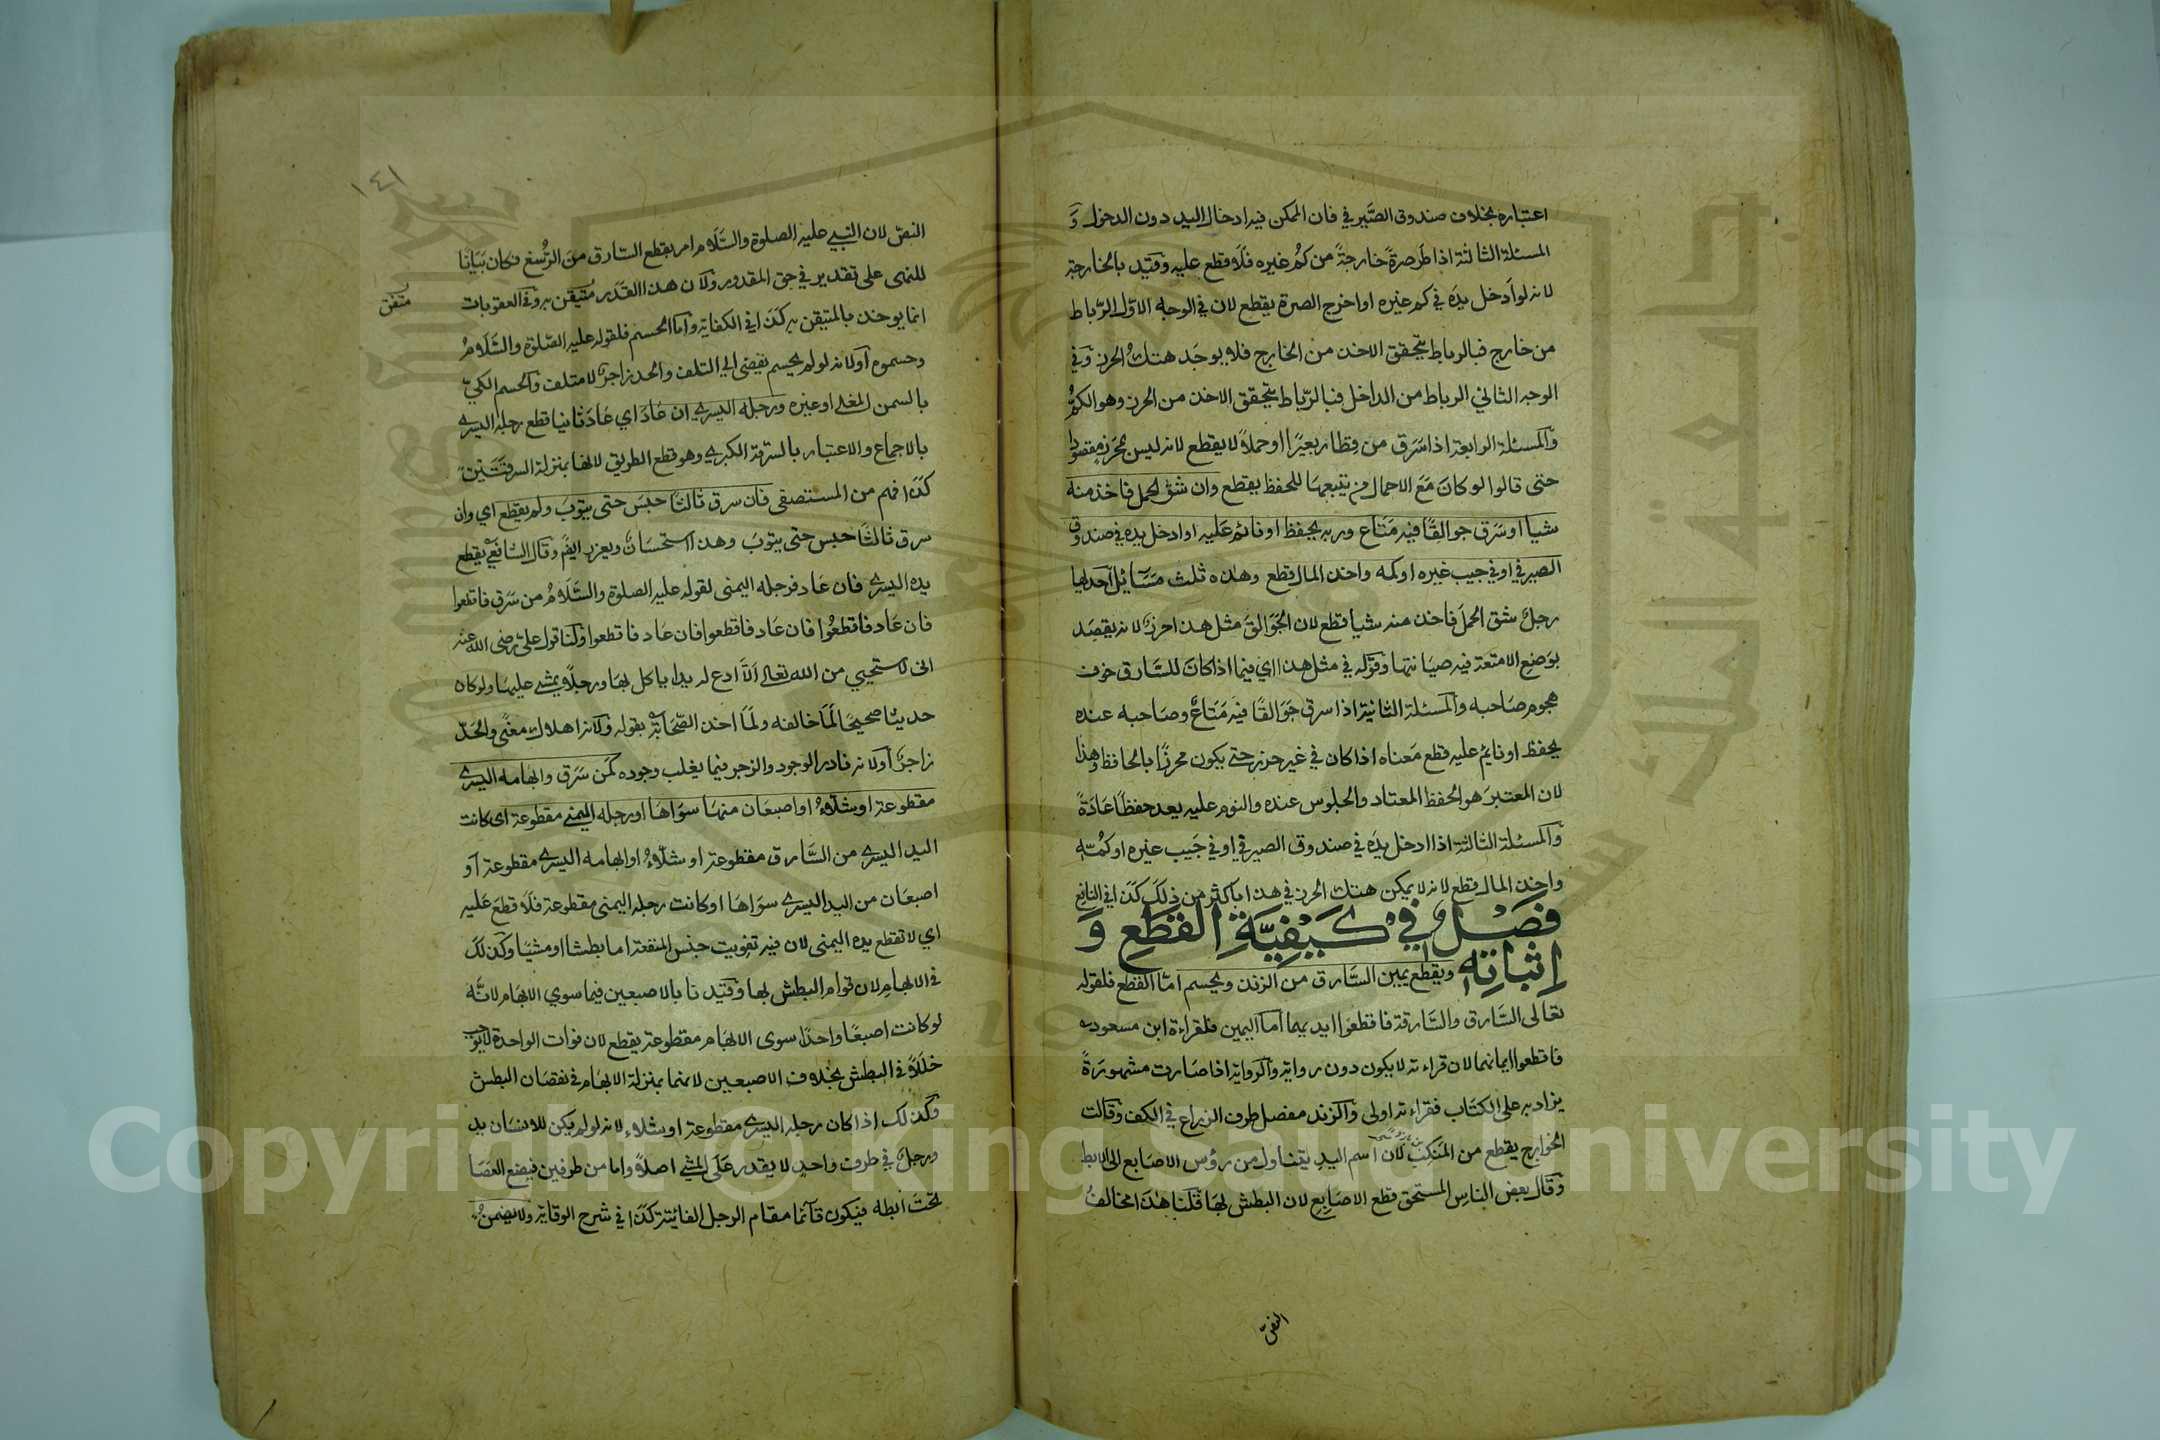 اعتباره بخلاف صندوق الصيرفي فان الممكن فيه ادخال اليد دون الدخول و
المسئلة الثالثة اذا طر صرة خارجة من كم غيره فلا قطع عليه وقيد بالخارجة
لانه لو ادخل يده في كم غيره او اخرج الصرة يقطع لان في الوجه الاول الرباط
من خارج فبالرباط يتحقق الاخذ من الخارج فلا يوجد هتك الحرز وفي
الوجه الثاني الرباط من الداخل فبالرباط يتحقق الاخذ من الحرز وهو الكم
والمسئلة الرابعة اذا سرق من قطار بعيرا او حملا لا يقطع لانه ليس بمحرز مقصودا
حتى قالوا لو كان مع الاحمال من يتبعها للحفظ يقطع وان شق الحمل فاخذ منه
شيا او سرق جوالقا فيه متاع وربه يحفظ او نائم عليه او ادخل يده في صندوق
الصيرفي او في جيب غيره او كمه واخذ المال قطع وهذه ثلث مسائل احدلها
رجل شق الحمل فاخذ منه شيا قطع لان الجوالق مثل هذا حرز لانه يقصد
بوضع الامتعة فيه صيانتها وقوله في مثل هذا اي فيما اذا كان للسارق خوف
هجوم صاحبه والمسئلة الثانية اذا سرق جوالقا فيه متاع وصاحبه عنده
يحفظ او نايم عليه قطع معناه اذا كان في غير حرز حتى يكون محرزا بالحافظ وهذا
لان المعتبر هو الحفظ المعتاد والجلوس عنده والنوم عليه يعد حفظا عادة
والمسئلة الثالثة اذا ادخل يده في صندوق الصيرفي او في جيب غيره او كمه
واخذ المال قطع لانه لا يمكن هتك الحرز في هذا باكثر من ذلك كذا في النافع
فصل في كيفية القطع و
اثباته ويقطع يمين السارق من الزند ويحسم اما القطع فلقوله
تعالى السارق والسارقة فاقطعوا ايديهما اما اليمين فلقراءة ابن مسعود
فاقطعوا ايمانهما لان قراءته لا يكون دون رواية والرواية اذا صارت مشهورة
يزاد به على الكتاب فقراءته اولى والزند مفصل طرف الزراع في الكف وقالت
الخوارج يقطع من المنكب لان اسم اليد يتناول من رؤس الاصابع الى الابط
وقال بعض الناس المستحق قطع الاصابع لان البطش بها قلنا هذا مخالف
النص
١٤١
النص لان النبي عليه الصلوة والسلام امر بقطع السارق من الرسغ فكان بيانا
للنهى على تقدير في حق المقدور ولان هذا القدر متيقن به وفي العقوبات
متقن
انما يوخذ بالمتيقن به كذا في الكفاية واما الحسم فلقوله عليه الصلوة والسلام
وحسموه اولانه لو لم يحسم يفضى الي التلف والحد زاجر لا متلف والحسم الكي
بالسمن المغلي او غيره ورجله اليسري ان عاد اي عاد ثانيا قطع رجله اليسري
بالاجماع والاعتبار بالسرقة الكبري وهو قطع الطريق لانها بمنزلة السرقتين
كذا فهم من المستصفى فان سرق ثالثا حبس حتى يتوب ولم يقطع اي وان
سرق ثالثا حبس حتى يتوب وهذا استحسان ويعزر ايضا وقال الشافعي يقطع
يده اليسري فان عاد فرجله اليمنى لقوله عليه الصلوة والسلام من سرق فاقطعوا
فان عاد فاقطعوا فان عاد فاقطعوا فان عاد فاقطعوا ولنا قول علي رضى الله عنه
انى لاستحيي من الله تعالى الا ادع له يدا ياكل بها ورجلا يمشي عليها ولو كان
حديثا صحيحا لما خالفه ولما اخذ الصحابة بقوله ولانه اهلاك معنى والحد
زاجر اولانه نادر الوجود والزجر فيما يغلب وجوده كمن سرق وابهامه اليسري
مقطوعة او شلاء او اصبعان منها سواها او رجله اليمنى مقطوعة اى كانت
اليد اليسرى من السارق مقطوعة او شلاء او ابهامه اليسري مقطوعة او
اصبعان من اليد اليسري سواها او كانت رجله اليمنى مقطوعة فلا قطع عليه
اي لا تقطع يده اليمنى لان فيه تفويت جنس المنفعة اما بطشا او مشيا وكذلك
في الابهام لان قوام البطش بها وقيدنا بالاصبعين فيما سوي الابهام لانه
لو كانت اصبعا واحدا سوى الابهام مقطوعة يقطع لان فوات الواحدة لا يوجب
خللا في البطش بخلاف الاصبعين لانهما بمنزلة الابهام في نقصان البطش
وكذلك اذا كان رجله اليسري مقطوعة او شلاء لانه لو لم يكن للانسان يد
ورجل في طرف واحد لا يقدر على المشي اصلا واما من طرفين فيضع العصا
تحت ابطه فيكون قائما مقام الرجل الفائتة كذا في شرح الوقاية ولا يضمن
Copyright © King Saud University